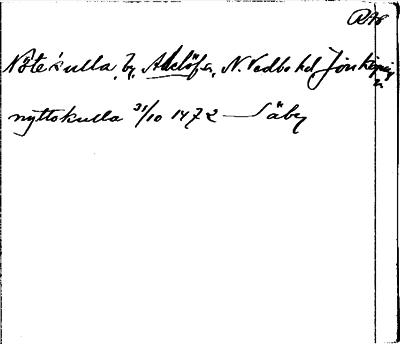 RAp
Nötekulla, by, Adelöfs, N. Vedbo hd, Jönköpings l.
nyttokulla 31/10 1472 Säby